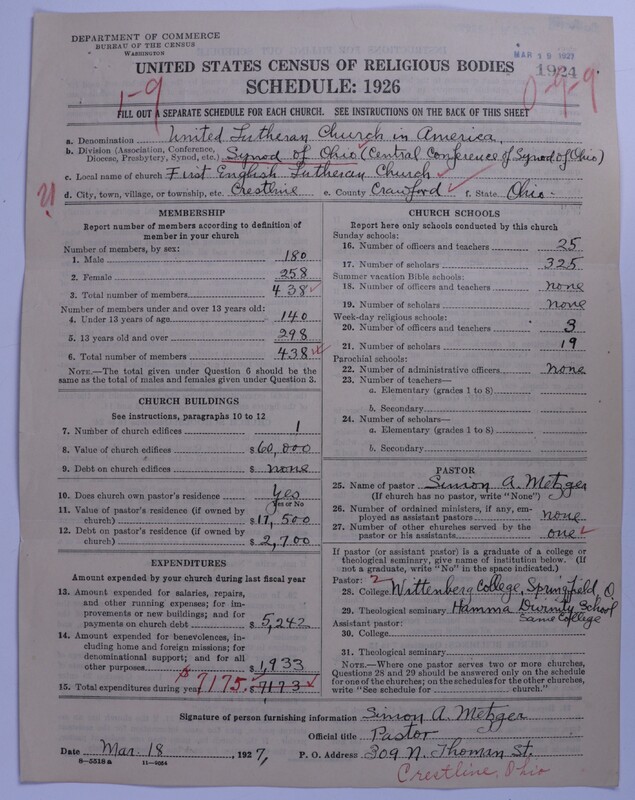 DEPARTMENT OF COMMERCE
BUREAU OF THE CENSUS
WASHINGTON
MAR 19 1927
1924
UNITED STATES CENSUS OF RELIGIOUS BODIES
SCHEDULE: 1926
1-9
0-9-9
FILL OUT A SEPARATE SCHEDULE FOR EACH CHURCH. SEE INSTRUCTIONS ON THE BACK OF THIS SHEET
a. Denomination United Lutheran Church in America,
b. Division (Association, Conference,
Diocese, Presbytery, Synod, etc.) Synod of Ohio (Central Conference of Synod of Ohio)
c. Local name of church First English Lutheran Church
d. City, town, village, or township, etc. Crestline e. County Crawford f. State Ohio.
MEMBERSHIP
Report number of members according to definition of
member in your church
Number of members, by sex:
1. Male 180
2. Female 258
3. Total number of members 438
Number of members under and over 13 years old:
4. Under 13 years of age 140
5. 13 years old and over 298
6. Total number of members 438
NOTE.—The total given under Question 6 should be the
same as the total of males and females given under Question 3.
CHURCH BUILDINGS
See instructions, paragraphs 10 to 12
7. Number of church edifices 1
8. Value of church edifices $ 60,000
9. Debt on church edifices $ none
10. Does church own pastor's residence Yes
Yes or No
11. Value of pastor's residence (if owned by
church) $ 17,500
12. Debt on pastor's residence (if owned by
church) $ 2,700
EXPENDITURES
Amount expended by your church during last fiscal year
13. Amount expended for salaries, repairs,
and other running expenses; for im-
provements or new buildings; and for
payments on church debt $ 5,242
14. Amount expended for benevolences, in-
cluding home and foreign missions; for
denominational support; and for all
other purposes $ 1,933
15. Total expenditures during year $7175 $ 7173
CHURCH SCHOOLS
Report here only schools conducted by this church
Sunday schools:
16. Number of officers and teachers 25
17. Number of scholars 325
Summer vacation Bible schools:
18. Number of officers and teachers none
19. Number of scholars none
Week-day religious schools:
20. Number of officers and teachers 3
21. Number of scholars 19
Parochial schools:
22. Number of administrative officers none
23. Number of teachers—
a. Elementary (grades 1 to 8)
b. Secondary
24. Number of scholars—
a. Elementary (grades 1 to 8)
b. Secondary
PASTOR
25. Name of pastor Simon A. Metzger
(If church has no pastor, write "None")
26. Number of ordained ministers, if any, em-
ployed as assistant pastors none
27. Number of other churches served by the
pastor or his assistants one
If pastor (or assistant pastor) is a graduate of a college or
theological seminary, give name of institution below. (If
not a graduate, write "No" in the space indicated.)
Pastor: 2
28. College Wittenberg College, Springfield, O.
29. Theological seminary Hamma Divinity School
Same College
Assistant pastor:
30. College
31. Theological seminary
NOTE.—Where one pastor serves two or more churches,
Questions 28 and 29 should be answered only on the schedule
for one of the churches; on the schedules for the other churches,
write "See schedule for church."
Signature of person furnishing information Simon A. Metzger
Official title Pastor
Date Mar. 18, 1927, P. O. Address 309 N. Thoman St.
8—5518a 11—9024
Crestline, Ohio